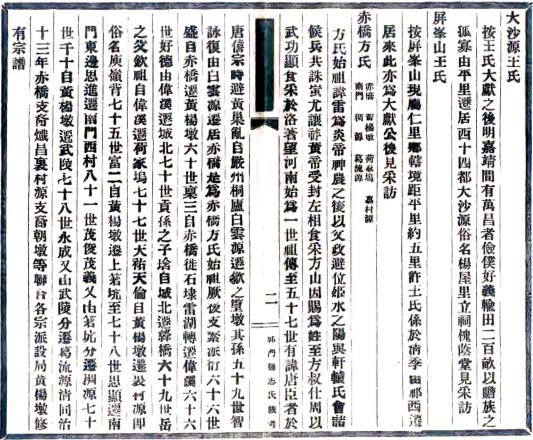 大沙源王氏
按王氏大獻之後明嘉靖間有萬昌者儉僕好義輸田二百畝以贍族之
孤寡由平里遷居西十四都大沙源俗名楊屋里立祠槐蔭堂見采訪
屏峯山王氏
按屏峯山現屬仁里鄉轄境距平里約五里許王氏係於清季由祁西遷
居來此亦爲大獻公後見采訪
赤橋方氏
赤橋 黃楊墩 荷家塢 嘉村源
南門 源 葛流源
方氏始祖諱雷爲炎帝神農之後以父政避位姬水之陽與軒轅氏會諸
候兵共誅蚩尤讓禅黃帝受封左相食采方山因賜爲姓至方叔仕周以
武功顯食采於洛著望河南始爲一世祖傳至五十七世有諱唐臣者於
唐僖宗時避黃巢亂自嚴州桐廬白雲源遷歙之篁墩其孫五十九世智
詠復由白雲源遷居赤橋是爲赤橋方氏始祖厥後支系派衍六十六世
盛自赤橋遷黃楊墩六十世稟三自赤橋徙石埭雷湖轉遷偉溪六十六
世好德由偉溪遷城北七十世貢孫之子自城北遷橋六十九世岳
之父欽祖自偉溪遷荷家塢七十七世大祐天倫自黃楊墩遷村源即
俗名庾嶺背七十五世富二自黃楊墩遷上箬坑至七十八世思顯遷南
門東邊思進遷南門西村八十一世茂俊茂義又由箬坑分遷源七十
世千十自黃楊墩遷武陵七十八世永成又由武陵分遷葛流源清同治
十三年赤橋支裔熾昌裏村源支裔朝墩等聯合各宗派設局黃楊墩修
有宗譜
二一
祁門縣志氏族考